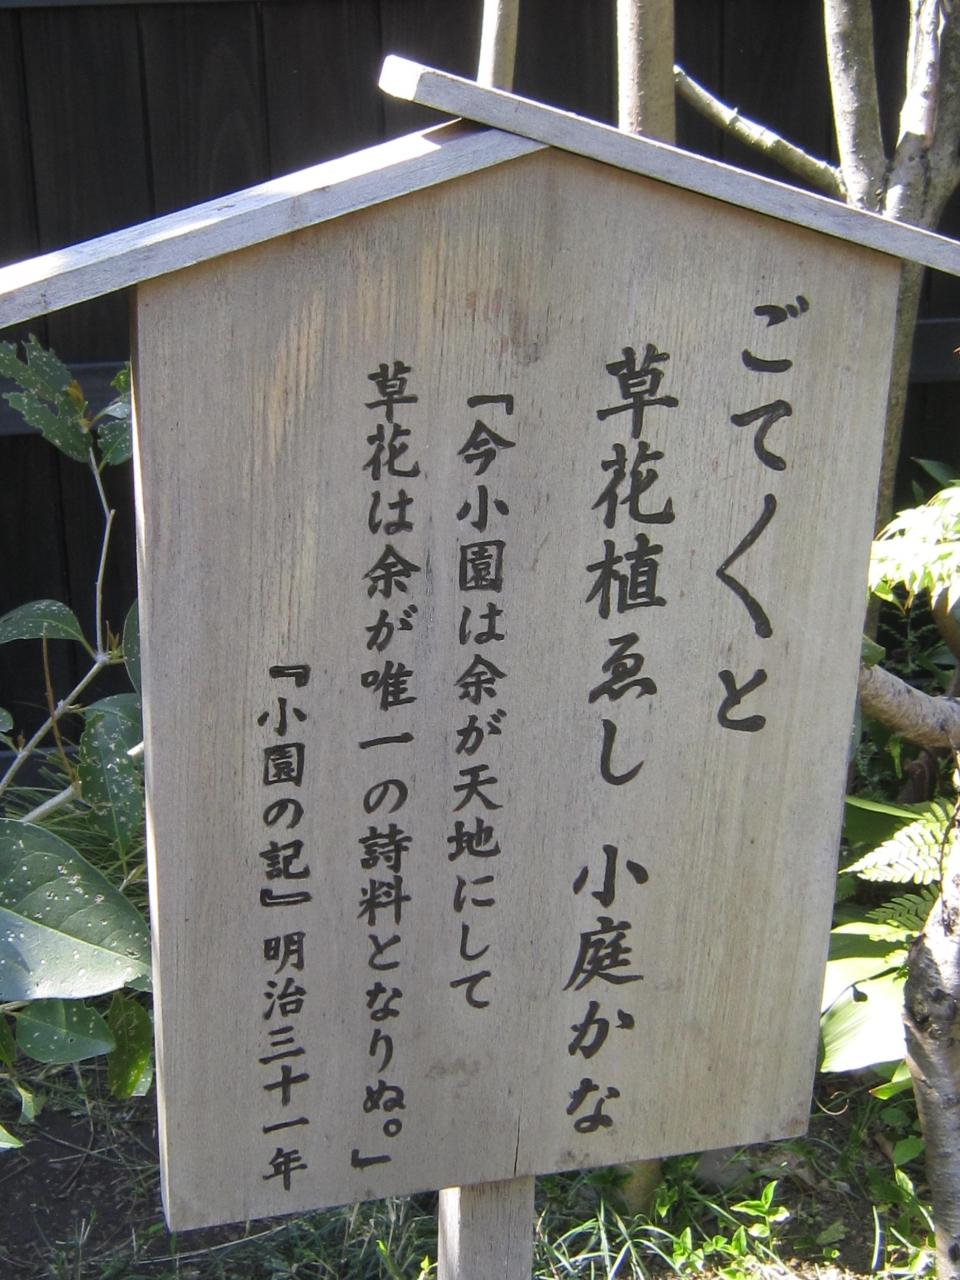 ごて〱と
草花植ゑし 小庭かな
「今小園は余が天地にして
草花は余が唯一の詩料となりぬ。」
『小園の記』明治三十一年